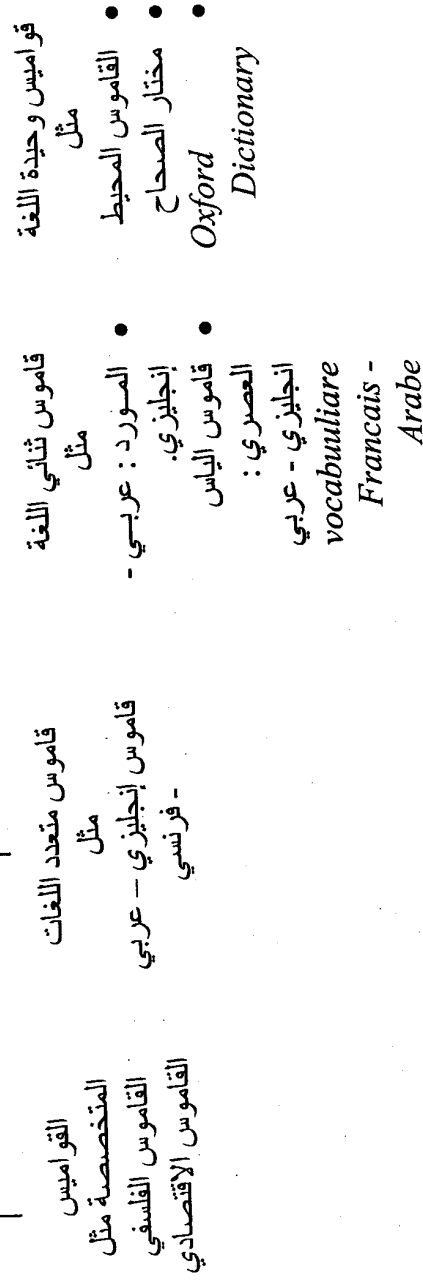 قواميس وحيدة اللغة
مثل
• القاموس المحيط
• مختار الصحاح
• Oxford
Dictionary
قاموس ثنائي اللغة
مثل
• المورد : عربي -
إنجليزي.
• قاموس الياس
العصري :
انجليزي - عربي
vocabuuliare
Francais -
Arabe
قاموس متعدد اللغات
مثل
قاموس إنجليزي – عربي
- فرنسي
القواميس
المتخصصة مثل
القاموس الفلسفي
القاموس الاقتصادي